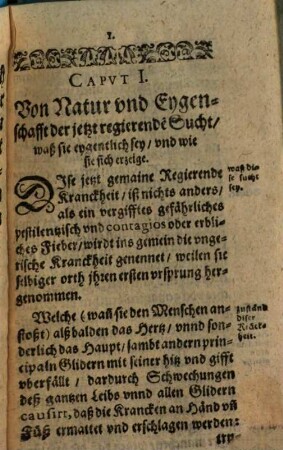 1.
CAPVT I.
Von Natur vnd Eygen-
schafft der jetzt regierendē Sucht/
waß sie eygentlich sey/ vnd wie
sie sich erzeige.
DIse jetzt gemaine Regierende
Kranckheit/ ist nichts anders/
als ein vergifftes gefährliches
pestilentzisch vnd contagios oder erbli-
ches Fieber/ wirdt ins gemein die vnge-
rische Kranckheit genennet/ weilen sie
selbiger orth jhren ersten vrsprung her-
genommen.
waß di-
se sucht
sey.
Welche (wañ sie den Menschen an-
stoßt) alß balden das Hertz/ vnnd son-
derlich das Haupt/ sambt andern prin-
cipaln Glidern mit seiner hitz vnd gifft
vberfällt/ dardurch Schwechungen
deß gantzen Leibs vnnd allen Glidern
causirt, daß die Krancken an Händ vñ
Füß ermattet vnd erschlagen werden:
zuständ
diser
Krāck-
heit.